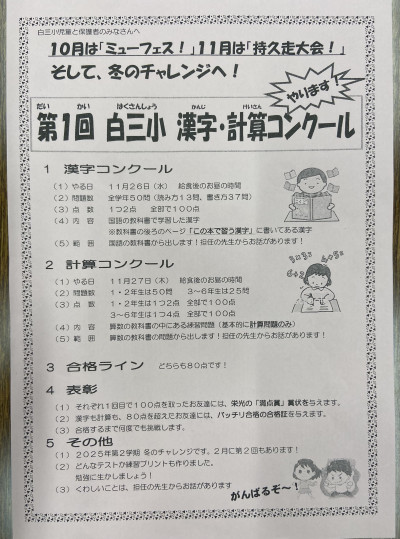 白三小児童と保護者のみなさんへ
10月は「ミューフェス！」11月は「持久走大会！」
そして、冬のチャレンジへ！
やります
第1回 白三小 漢字・計算コンクール
だい かい はくさんしょう かんじ けいさん
1 漢字コンクール
（1）やる日 11月26日（水） 給食後のお昼の時間
（2）問題数 全学年50問（読み方13問、書き方37問）
（3）点 数 1つ2点 全部で100点
（4）内 容 国語の教科書で学習した漢字
※教科書の後ろのページ「この本で習う漢字」に書いてある漢字
（5）範 囲 国語の教科書から出します！担任の先生からお話があります！
2 計算コンクール
（1）やる日 11月27日（木） 給食後のお昼の時間
（2）問題数 1・2年生は50問 3～6年生は25問
（3）点 数 1・2年生は1つ2点 全部で100点
3～6年生は1つ4点 全部で100点
（4）内 容 算数の教科書の中にある練習問題（基本的に計算問題のみ）
（5）範 囲 算数の教科書の問題から出します！担任の先生からお話があります！
3 合格ライン どちらも80点です！
4 表彰
（1）それぞれ1回目で100点を取ったお友達には、栄光の「満点賞」賞状を与えます。
（2）漢字も計算も、80点を超えたお友達には、バッチリ合格の合格証を与えます。
（3）合格するまで何度でも挑戦します。
5 その他
（1）2025年第2学期 冬のチャレンジです。2月に第2回もあります！
（2）どんなテストか練習プリントも作りました。
勉強に生かしましょう！
（3）くわしいことは、担任の先生からお話があります
がんばるぞ～！